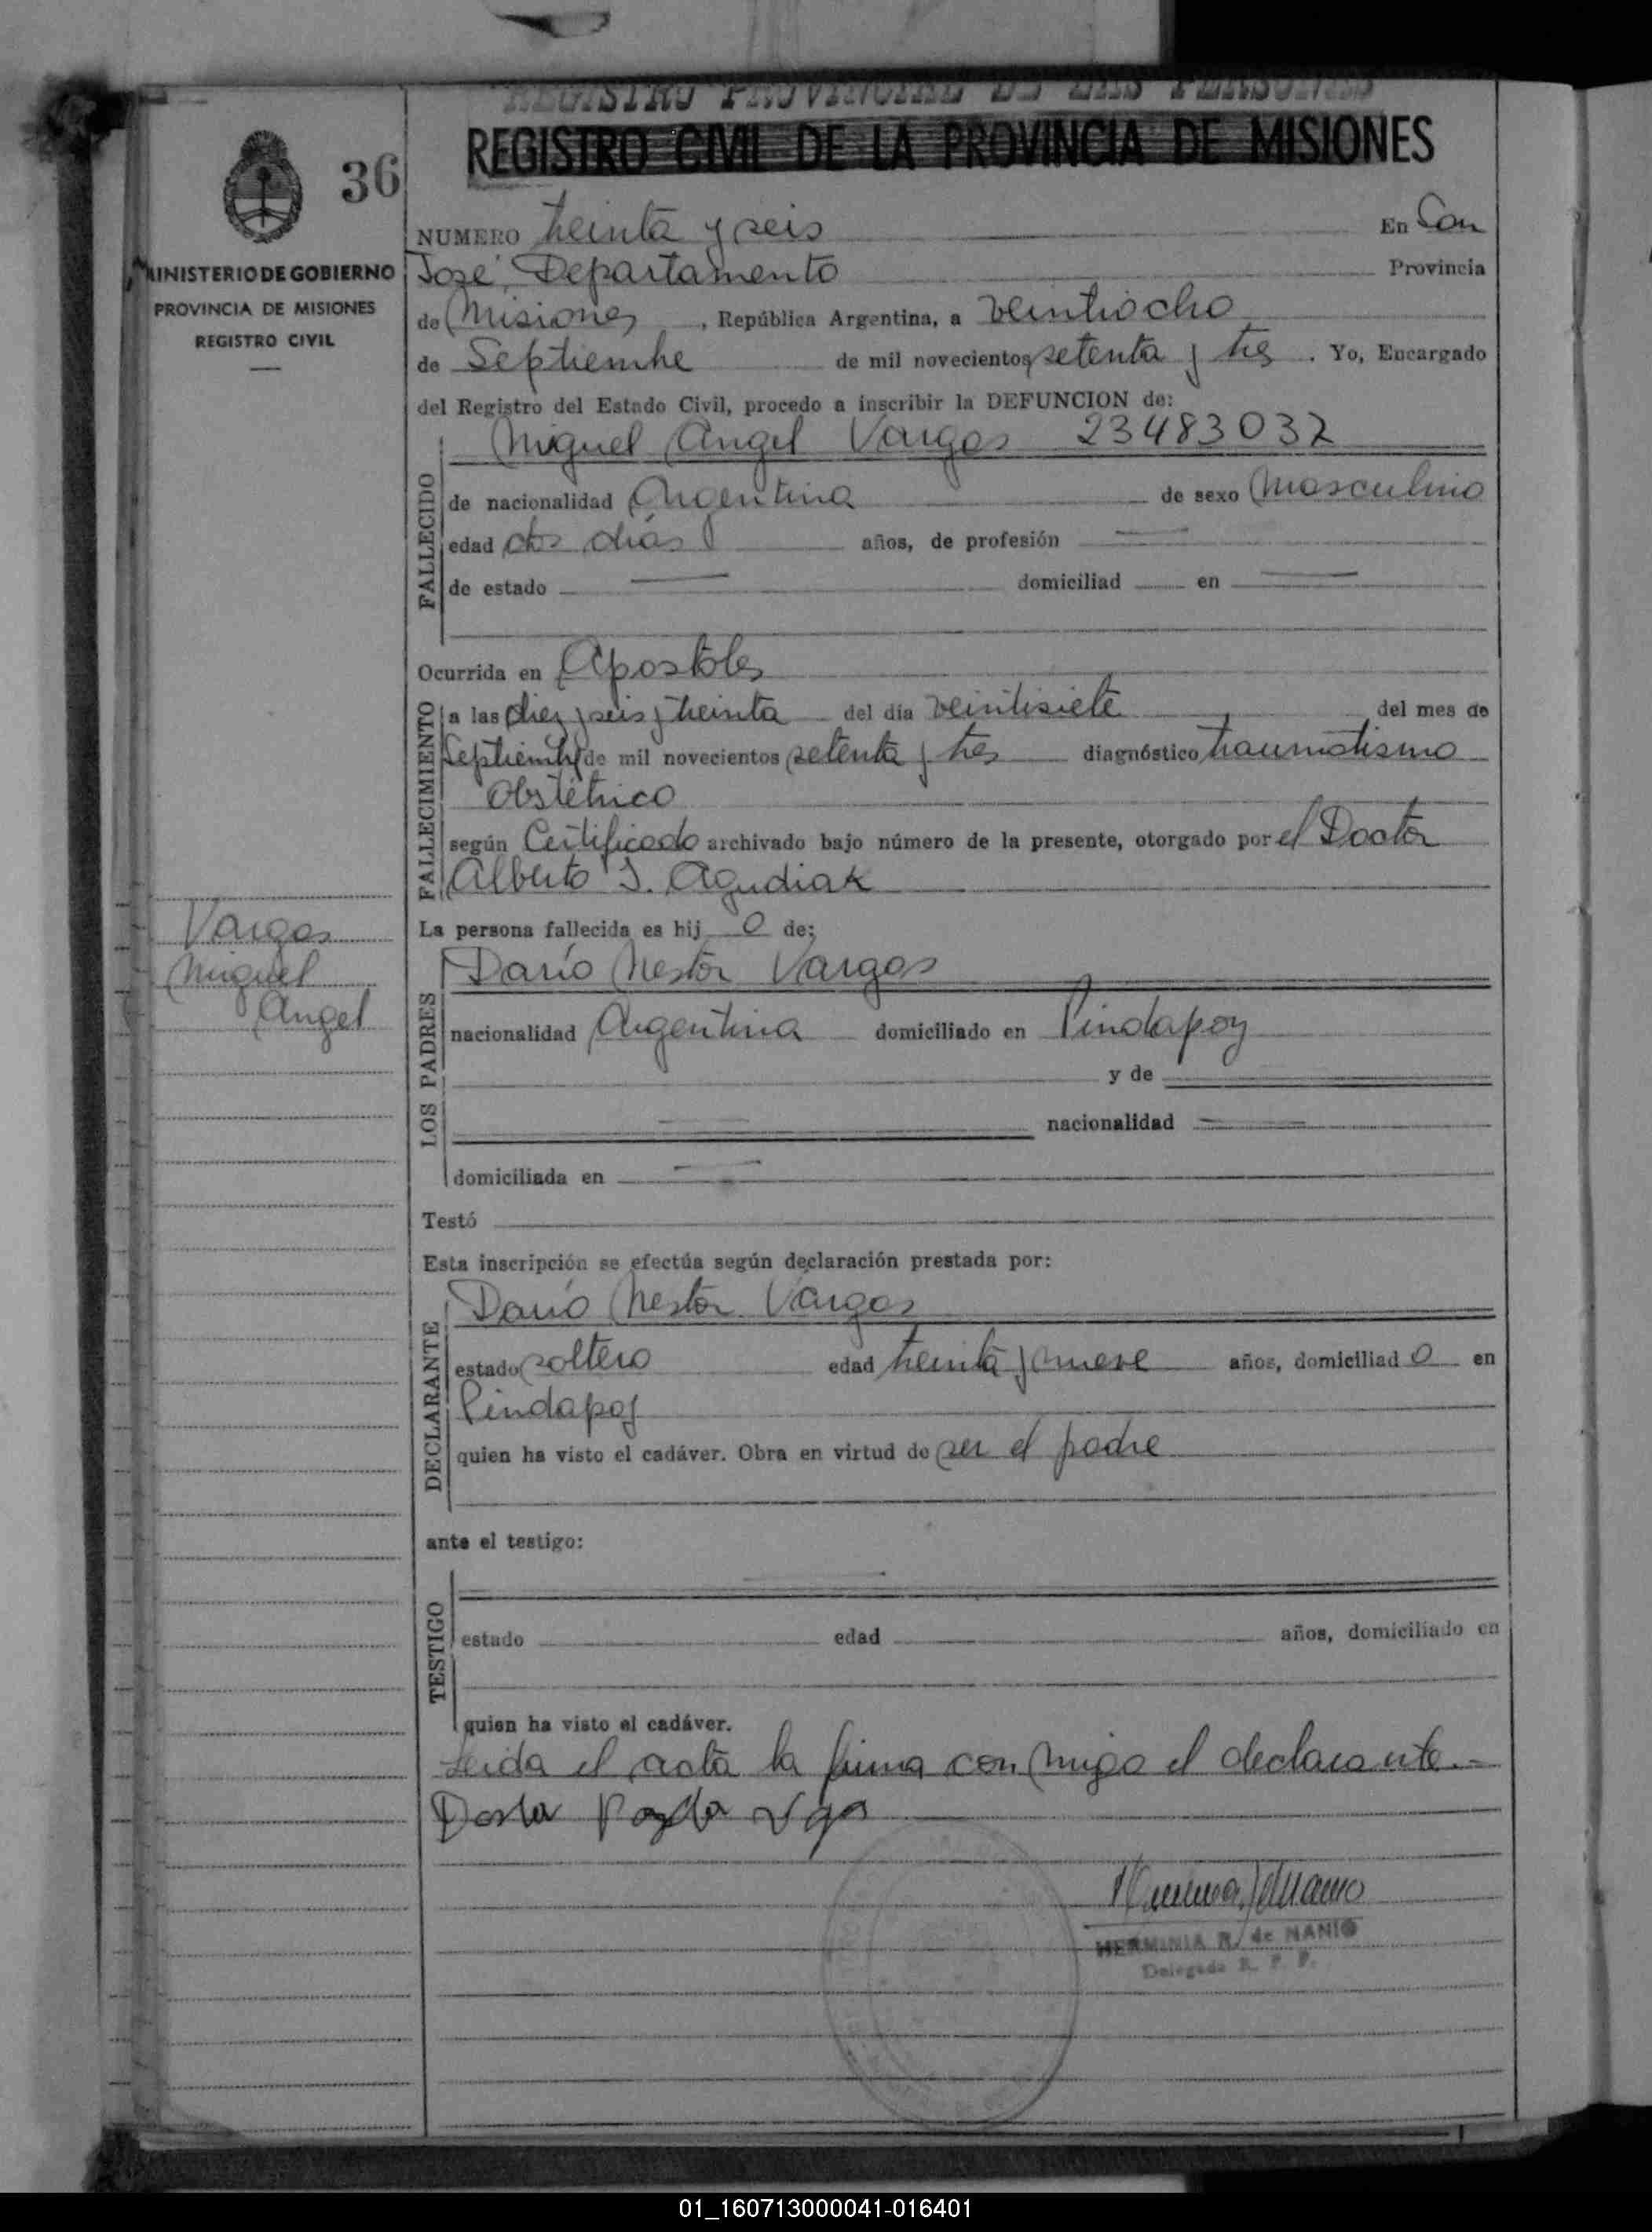 REGISTRO PROVINCIAL DE LAS PERSONAS
REGISTRO CIVIL DE LA PROVINCIA DE MISIONES
36
MINISTERIO DE GOBIERNO
PROVINCIA DE MISIONES
REGISTRO CIVIL
NUMERO treinta y seis En San
José Departamento Provincia
de Misiones, República Argentina, a veintiocho
de Septiembre de mil novecientos setenta y tres. Yo, Encargado
del Registro del Estado Civil, procedo a inscribir la DEFUNCION de:
Miguel Angel Vargas 23483032
FALLECIDO
de nacionalidad Argentina de sexo masculino
edad dos días años, de profesión —
de estado — domiciliad en —
Ocurrida en Apostoles
FALLECIMIENTO
a las diez y seis y treinta del día veintisiete del mes de
Septiembre de mil novecientos setenta y tres diagnóstico traumatismo
Obstétrico
según Certificado archivado bajo número de la presente, otorgado por el Doctor
Alberto J. Agudiak
Vargas
Miguel
Angel
La persona fallecida es hij o de:
LOS PADRES
Darío Nestor Vargas
nacionalidad Argentina domiciliado en Pindapoy
y de
— nacionalidad —
domiciliada en —
Testó
Esta inscripción se efectúa según declaración prestada por:
DECLARANTE
Darío Nestor Vargas
estado soltero edad treinta y nueve años, domiciliad o en
Pindapoy
quien ha visto el cadáver. Obra en virtud de ser el padre
ante el testigo:
TESTIGO
—
estado edad años, domiciliado en
quien ha visto el cadáver.
Leida el acta la firma con migo el declarante.-
HERMINIA R. de NANIO
Delegada R. P. P.
01_160713000041-016401